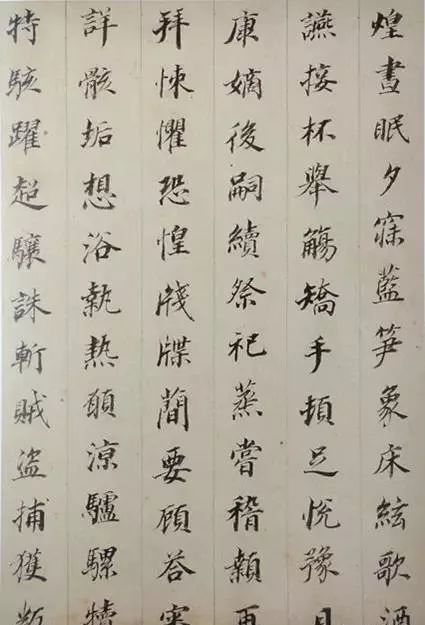 煌晝眠夕寐藍笋象床絃歌酒
讌接杯舉觴矯手頓足悅豫且
康嫡後嗣續祭祀蒸嘗稽顙再
拜悚懼恐惶牋牒簡要顧荅審
詳骸垢想浴執熱願涼驢騾犢
特駭躍超驤誅斬賊盗捕獲叛